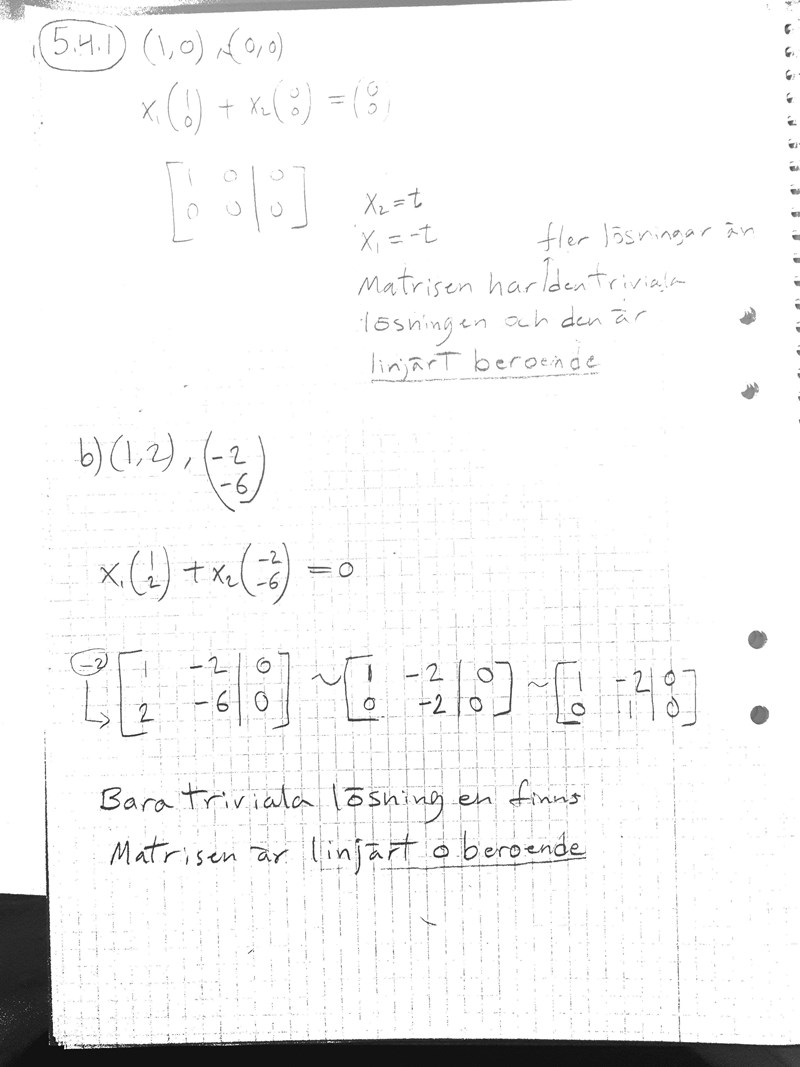 5.4.1 (1,0), (0,0)
x₁(1 0) + x₂(0 0) = (0 0)
[1 0 | 0
0 0 | 0]
x₂ = t
x₁ = -t
fler lösningar än
Matrisen har den triviala
lösningen och den är
linjärt beroende
b) (1,2), (-2 -6)
x₁(1 2) + x₂(-2 -6) = 0
-2 [1 -2 | 0 ~ [1 -2 | 0 ~ [1 -2 | 0
2 -6 | 0] 0 -2 | 0] 0 1 | 0]
Bara triviala lösningen finns
Matrisen är linjärt oberoende